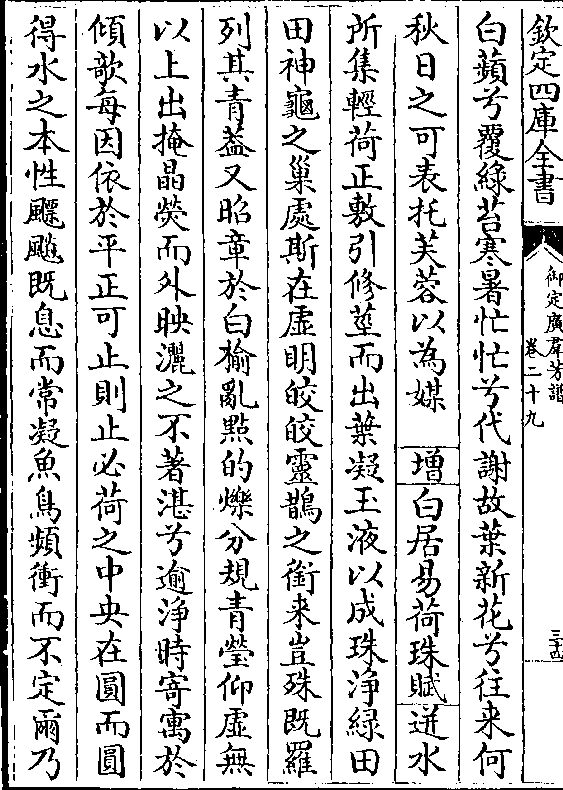 欽定四庫全書
御定廣羣芳譜
卷二十九
三十四
白蘋兮覆綠苔寒暑忙忙兮代謝故葉新花兮往来何
秋日之可表托芙蓉以為媒 增 白居易荷珠賦 迸水
所集輕荷正敷引修莖而出葉凝玉液以成珠净緑田
田神龜之巢處斯在虛明皎皎靈鵲之銜来豈殊既羅
列其青葢又昭章於白榆亂點的爍分規青瑩仰虛無
以上出掩晶熒而外映灑之不著湛兮逾净時寄寓於
傾欹每因依於平正可止則止必荷之中央在圓而圓
得水之本性飀飈既息而常凝魚鳥頻衝而不定爾乃